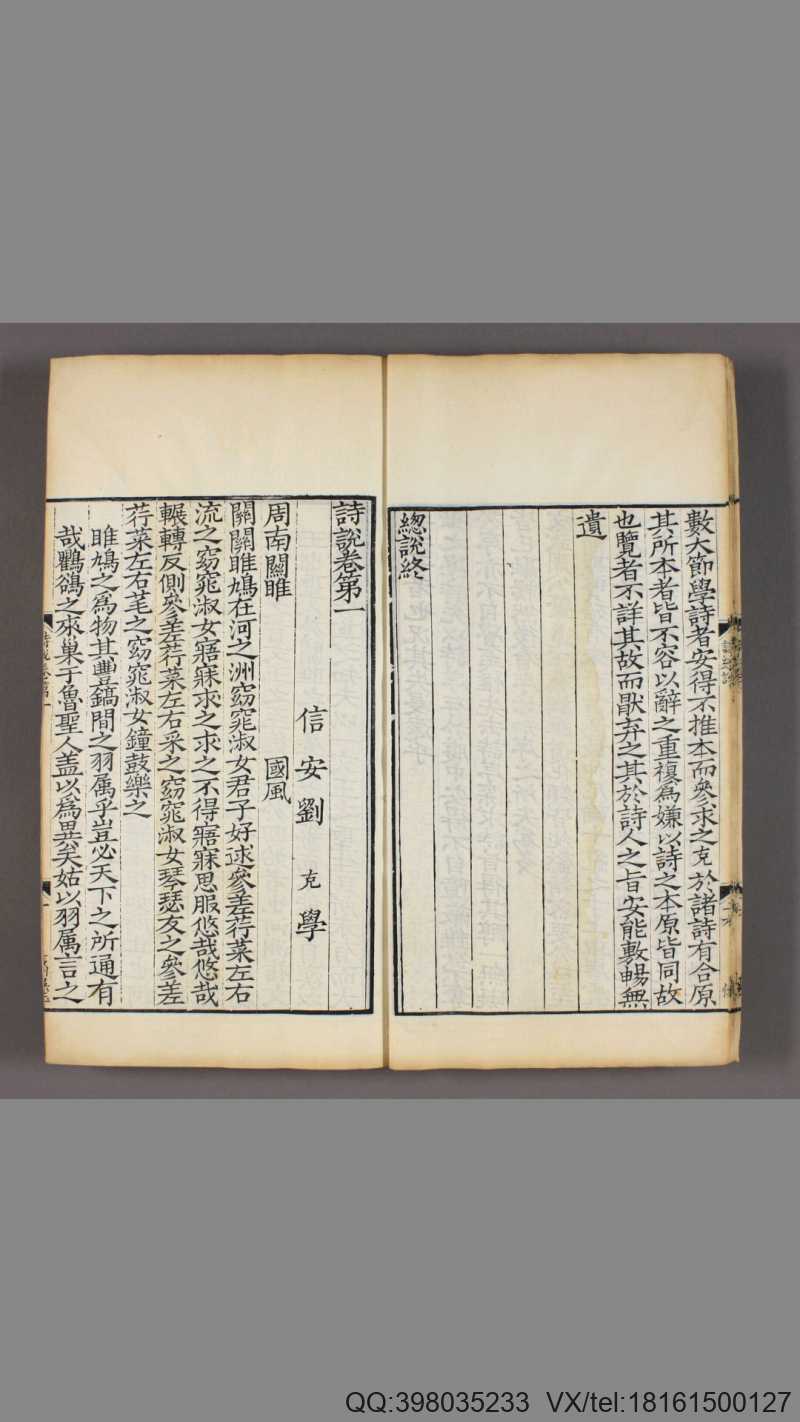 數大節學詩者安得不推本而參求之克於諸詩有合原
其所本者皆不容以辭之重複為嫌以詩之本原皆同故
也覽者不詳其故而厭弃之其於詩人之旨安能敷暢無
遺
緫說終
詩說卷第一
信安劉 克 學
周南關雎 國風
關關雎鳩在河之洲窈窕淑女君子好逑參差荇菜左右
流之窈窕淑女寤寐求之求之不得寤寐思服悠哉悠哉
輾轉反側參差荇菜左右采之窈窕淑女琴瑟友之參差
荇菜左右芼之窈窕淑女鐘鼓樂之
雎鳩之為物其豐鎬間之羽属乎豈必天下之所通有
哉鸜鵒之來巢于魯聖人盖以為異矣姑以羽属言之
QQ:398035233 VX/tel:18161500127